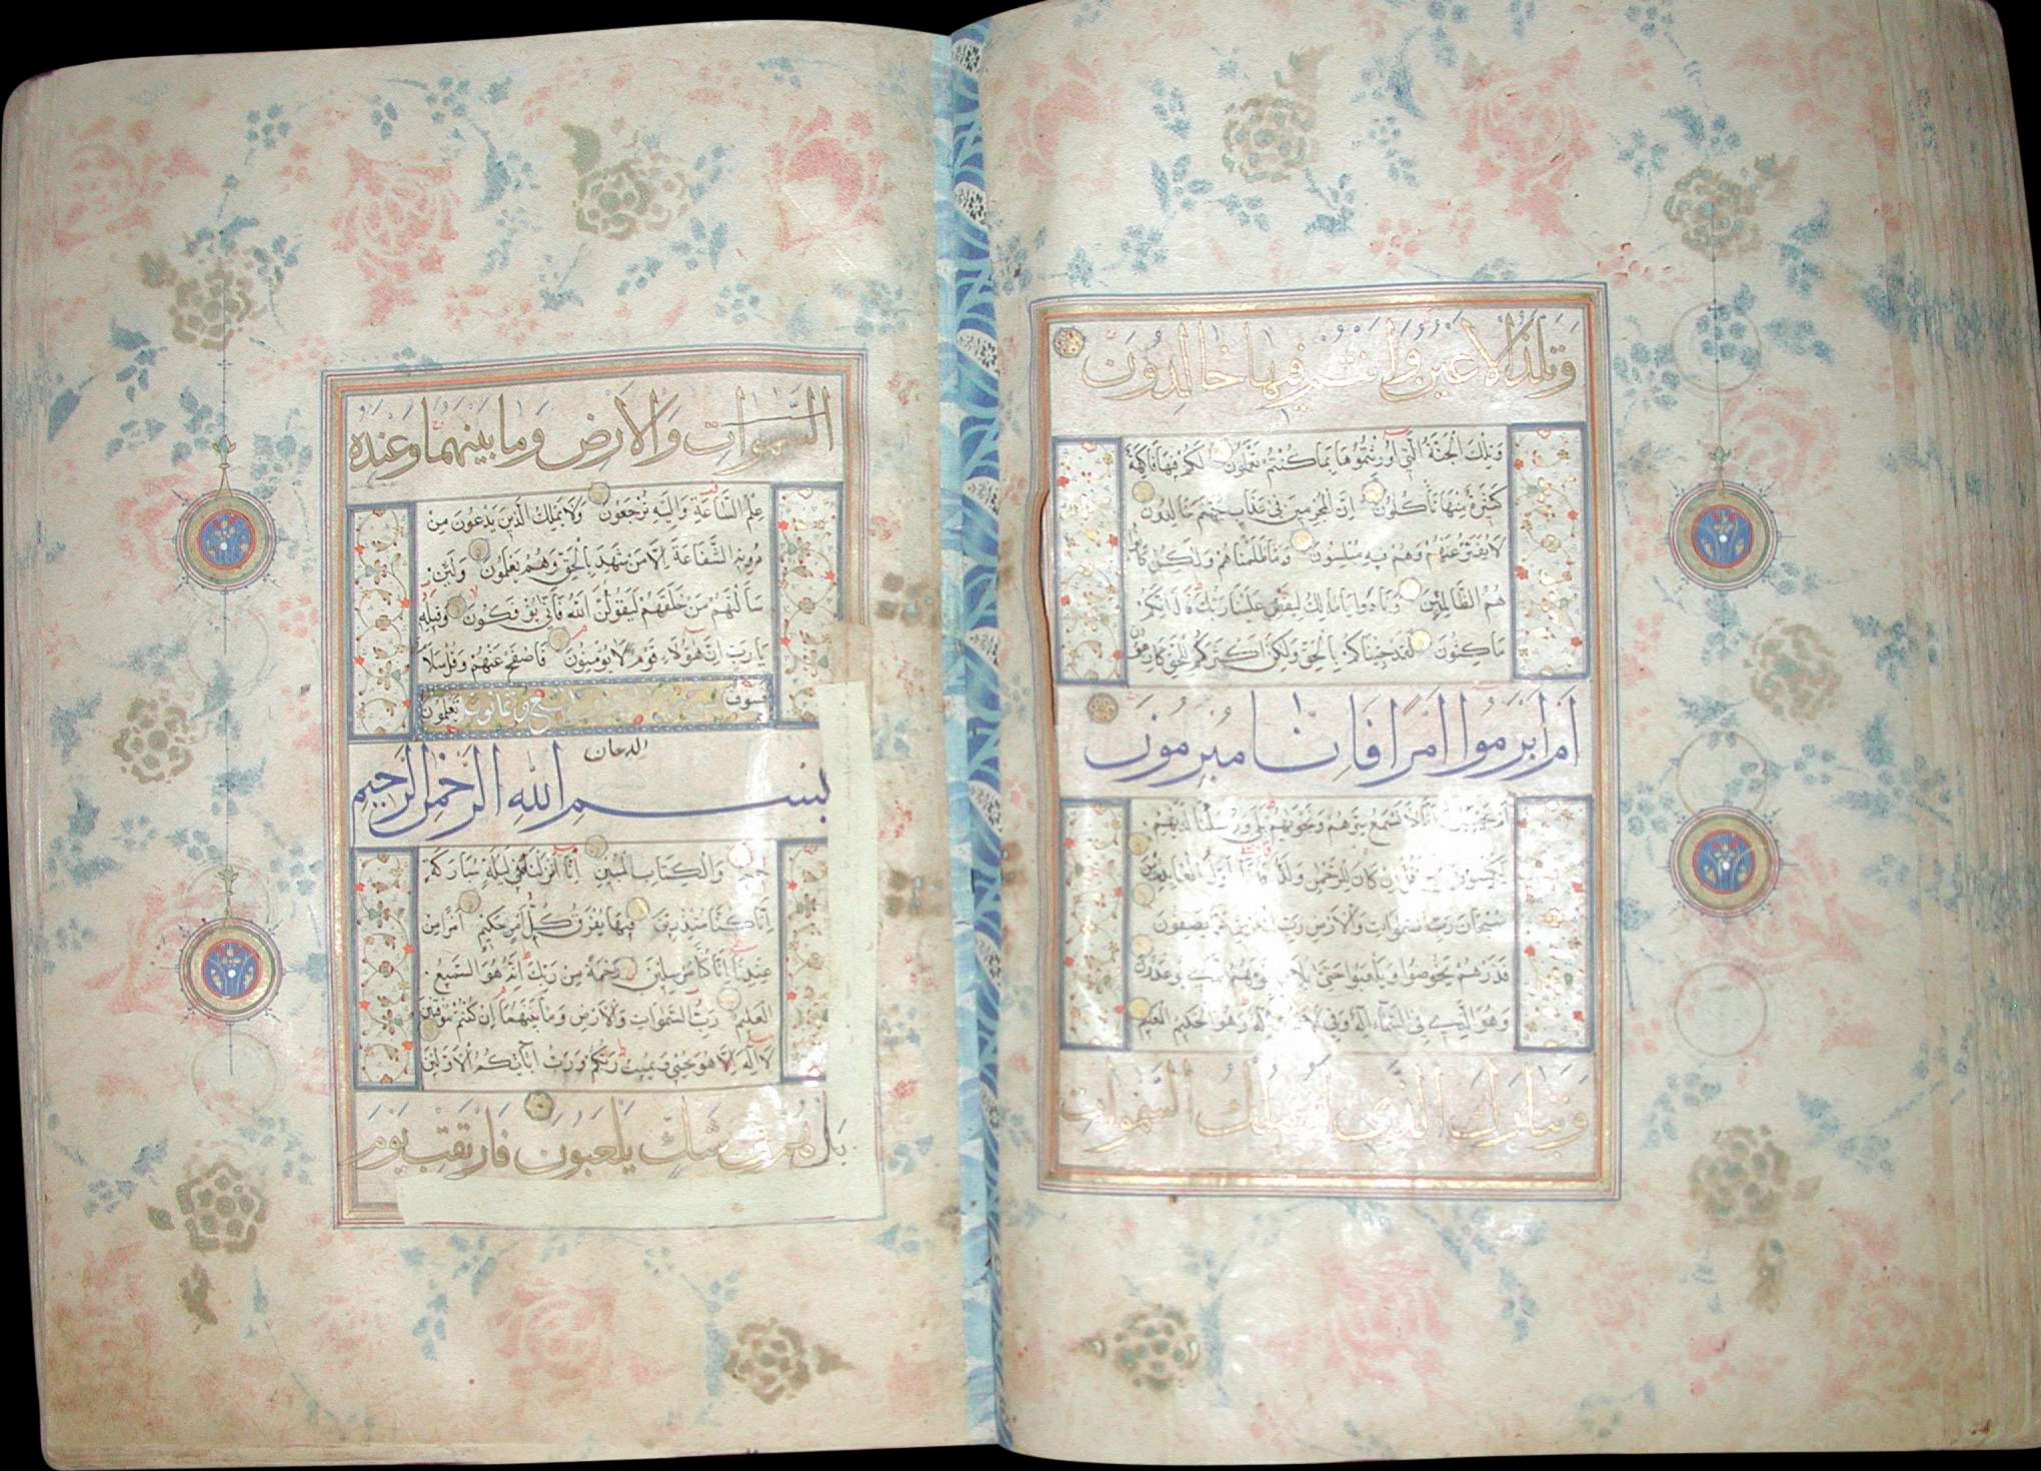 وَتَلَذُّ الْاَعْيُنُ وَاَنْتُمْ فِيهَا خَالِدُونَ
وَتِلْكَ الْجَنَّةُ الَّتِي اُورِثْتُمُوهَا بِمَا كُنْتُمْ تَعْمَلُونَ لَكُمْ فِيهَا فَاكِهَةٌ
كَثِيرَةٌ مِنْهَا تَأْكُلُونَ اِنَّ الْمُجْرِمِينَ فِي عَذَابِ جَهَنَّمَ خَالِدُونَ
لَا يُفَتَّرُ عَنْهُمْ وَهُمْ فِيهِ مُبْلِسُونَ وَمَا ظَلَمْنَاهُمْ وَلَكِنْ كَانُوا
هُمُ الظَّالِمِينَ وَنَادَوْا يَا مَالِكُ لِيَقْضِ عَلَيْنَا رَبُّكَ قَالَ اِنَّكُمْ
مَاكِثُونَ لَقَدْ جِئْنَاكُمْ بِالْحَقِّ وَلَكِنَّ اَكْثَرَكُمْ لِلْحَقِّ كَارِهُونَ
اَمْ اَبْرَمُوا اَمْرًا فَاِنَّا مُبْرِمُونَ
اَمْ يَحْسَبُونَ اَنَّا لَا نَسْمَعُ سِرَّهُمْ وَنَجْوَيهُمْ بَلَى وَرُسُلُنَا لَدَيْهِمْ
يَكْتُبُونَ قُلْ اِنْ كَانَ لِلرَّحْمَنِ وَلَدٌ فَاَنَا اَوَّلُ الْعَابِدِينَ
سُبْحَانَ رَبِّ السَّمَوَاتِ وَالْاَرْضِ رَبِّ الْعَرْشِ عَمَّا يَصِفُونَ
فَذَرْهُمْ يَخُوضُوا وَيَلْعَبُوا حَتَّى يُلَاقُوا يَوْمَهُمُ الَّذِي يُوعَدُونَ
وَهُوَ الَّذِي فِي السَّمَاءِ اِلَهٌ وَفِي الْاَرْضِ اِلَهٌ وَهُوَ الْحَكِيمُ الْعَلِيمُ
وَتَبَارَكَ الَّذِي لَهُ مُلْكُ السَّمَوَاتِ
السَّمَوَاتِ وَالْاَرْضِ وَمَا بَيْنَهُمَا وَعِنْدَهُ
عِلْمُ السَّاعَةِ وَاِلَيْهِ تُرْجَعُونَ وَلَا يَمْلِكُ الَّذِينَ يَدْعُونَ مِنْ
دُونِهِ الشَّفَاعَةَ اِلَّا مَنْ شَهِدَ بِالْحَقِّ وَهُمْ يَعْلَمُونَ وَلَئِنْ
سَاَلْتَهُمْ مَنْ خَلَقَهُمْ لَيَقُولُنَّ اللهُ فَاَنَّى يُؤْفَكُونَ وَقِيلِهِ
يَا رَبِّ اِنَّ هَؤُلَاءِ قَوْمٌ لَا يُؤْمِنُونَ فَاصْفَحْ عَنْهُمْ وَقُلْ سَلَامٌ
فَسَوْفَ تَعْلَمُونَ
الدخان
بِسْمِ اللهِ الرَّحْمَنِ الرَّحِيمِ
حم وَالْكِتَابِ الْمُبِينِ اِنَّا اَنْزَلْنَاهُ فِي لَيْلَةٍ مُبَارَكَةٍ
اِنَّا كُنَّا مُنْذِرِينَ فِيهَا يُفْرَقُ كُلُّ اَمْرٍ حَكِيمٍ اَمْرًا مِنْ
عِنْدِنَا اِنَّا كُنَّا مُرْسِلِينَ رَحْمَةً مِنْ رَبِّكَ اِنَّهُ هُوَ السَّمِيعُ
الْعَلِيمُ رَبِّ السَّمَوَاتِ وَالْاَرْضِ وَمَا بَيْنَهُمَا اِنْ كُنْتُمْ مُوقِنِينَ
لَا اِلَهَ اِلَّا هُوَ يُحْيِي وَيُمِيتُ رَبُّكُمْ وَرَبُّ اٰبَائِكُمُ الْاَوَّلِينَ
بَلْ هُمْ فِي شَكٍّ يَلْعَبُونَ فَارْتَقِبْ يَوْمَ